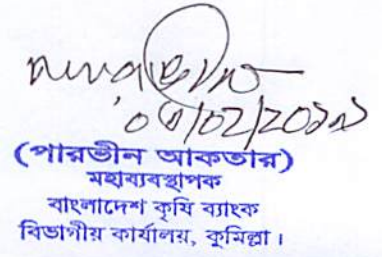 (পারভীন আকতার)
মহাব্যবস্থাপক
বাংলাদেশ কৃষি ব্যাংক
বিভাগীয় কার্যালয়, কুমিল্লা।